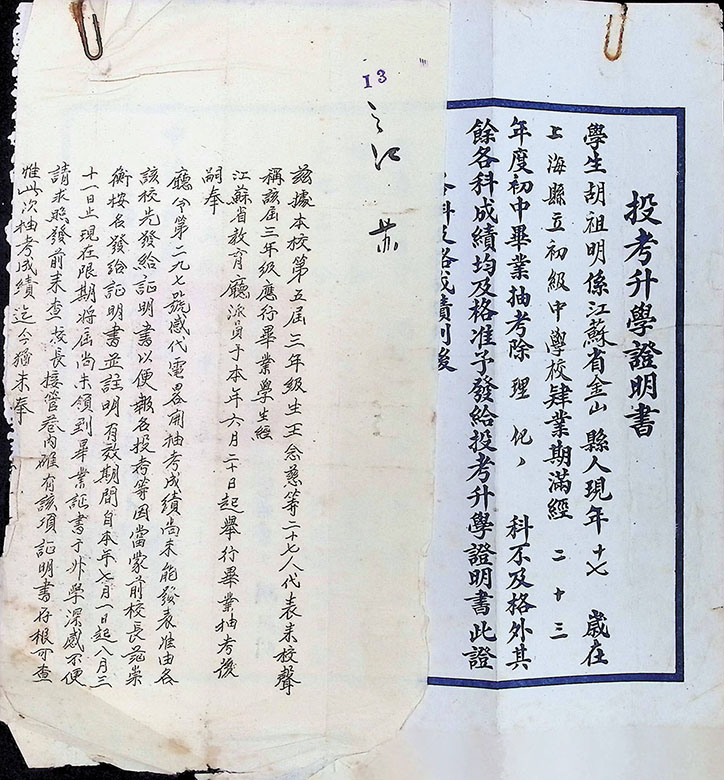 投考升學證明書
學生胡祖明係江蘇省金山縣人現年十七歲在
上海縣立初級中學校肄業期滿經二十三
年度初中畢業抽考除理化、科不及格外其
餘各科成績均及格准予發給投考升學證明書此證
各科及格成績列後
13
之江
兹據本校第五屆三年級生王念慈等二十七人代表来校聲
稱該屆三年級應行畢業學生經
江蘇省教育廳派員于本年六月二十日起舉行畢業抽考後
嗣奉
廳令第二九七號感代電畧開抽考成績尚未能發表准由各
該校先發給証明書以便報名投考等因當蒙前校長范崇
衡按名發給証明書並註明有效期間自本年七月一日起八月三
十一日止現在限期將屆尚未領到畢業証書于升學深感不便
請求照發前来查校長接管卷內確有該項証明書存根可查
惟此次抽考成績迄今猶未奉